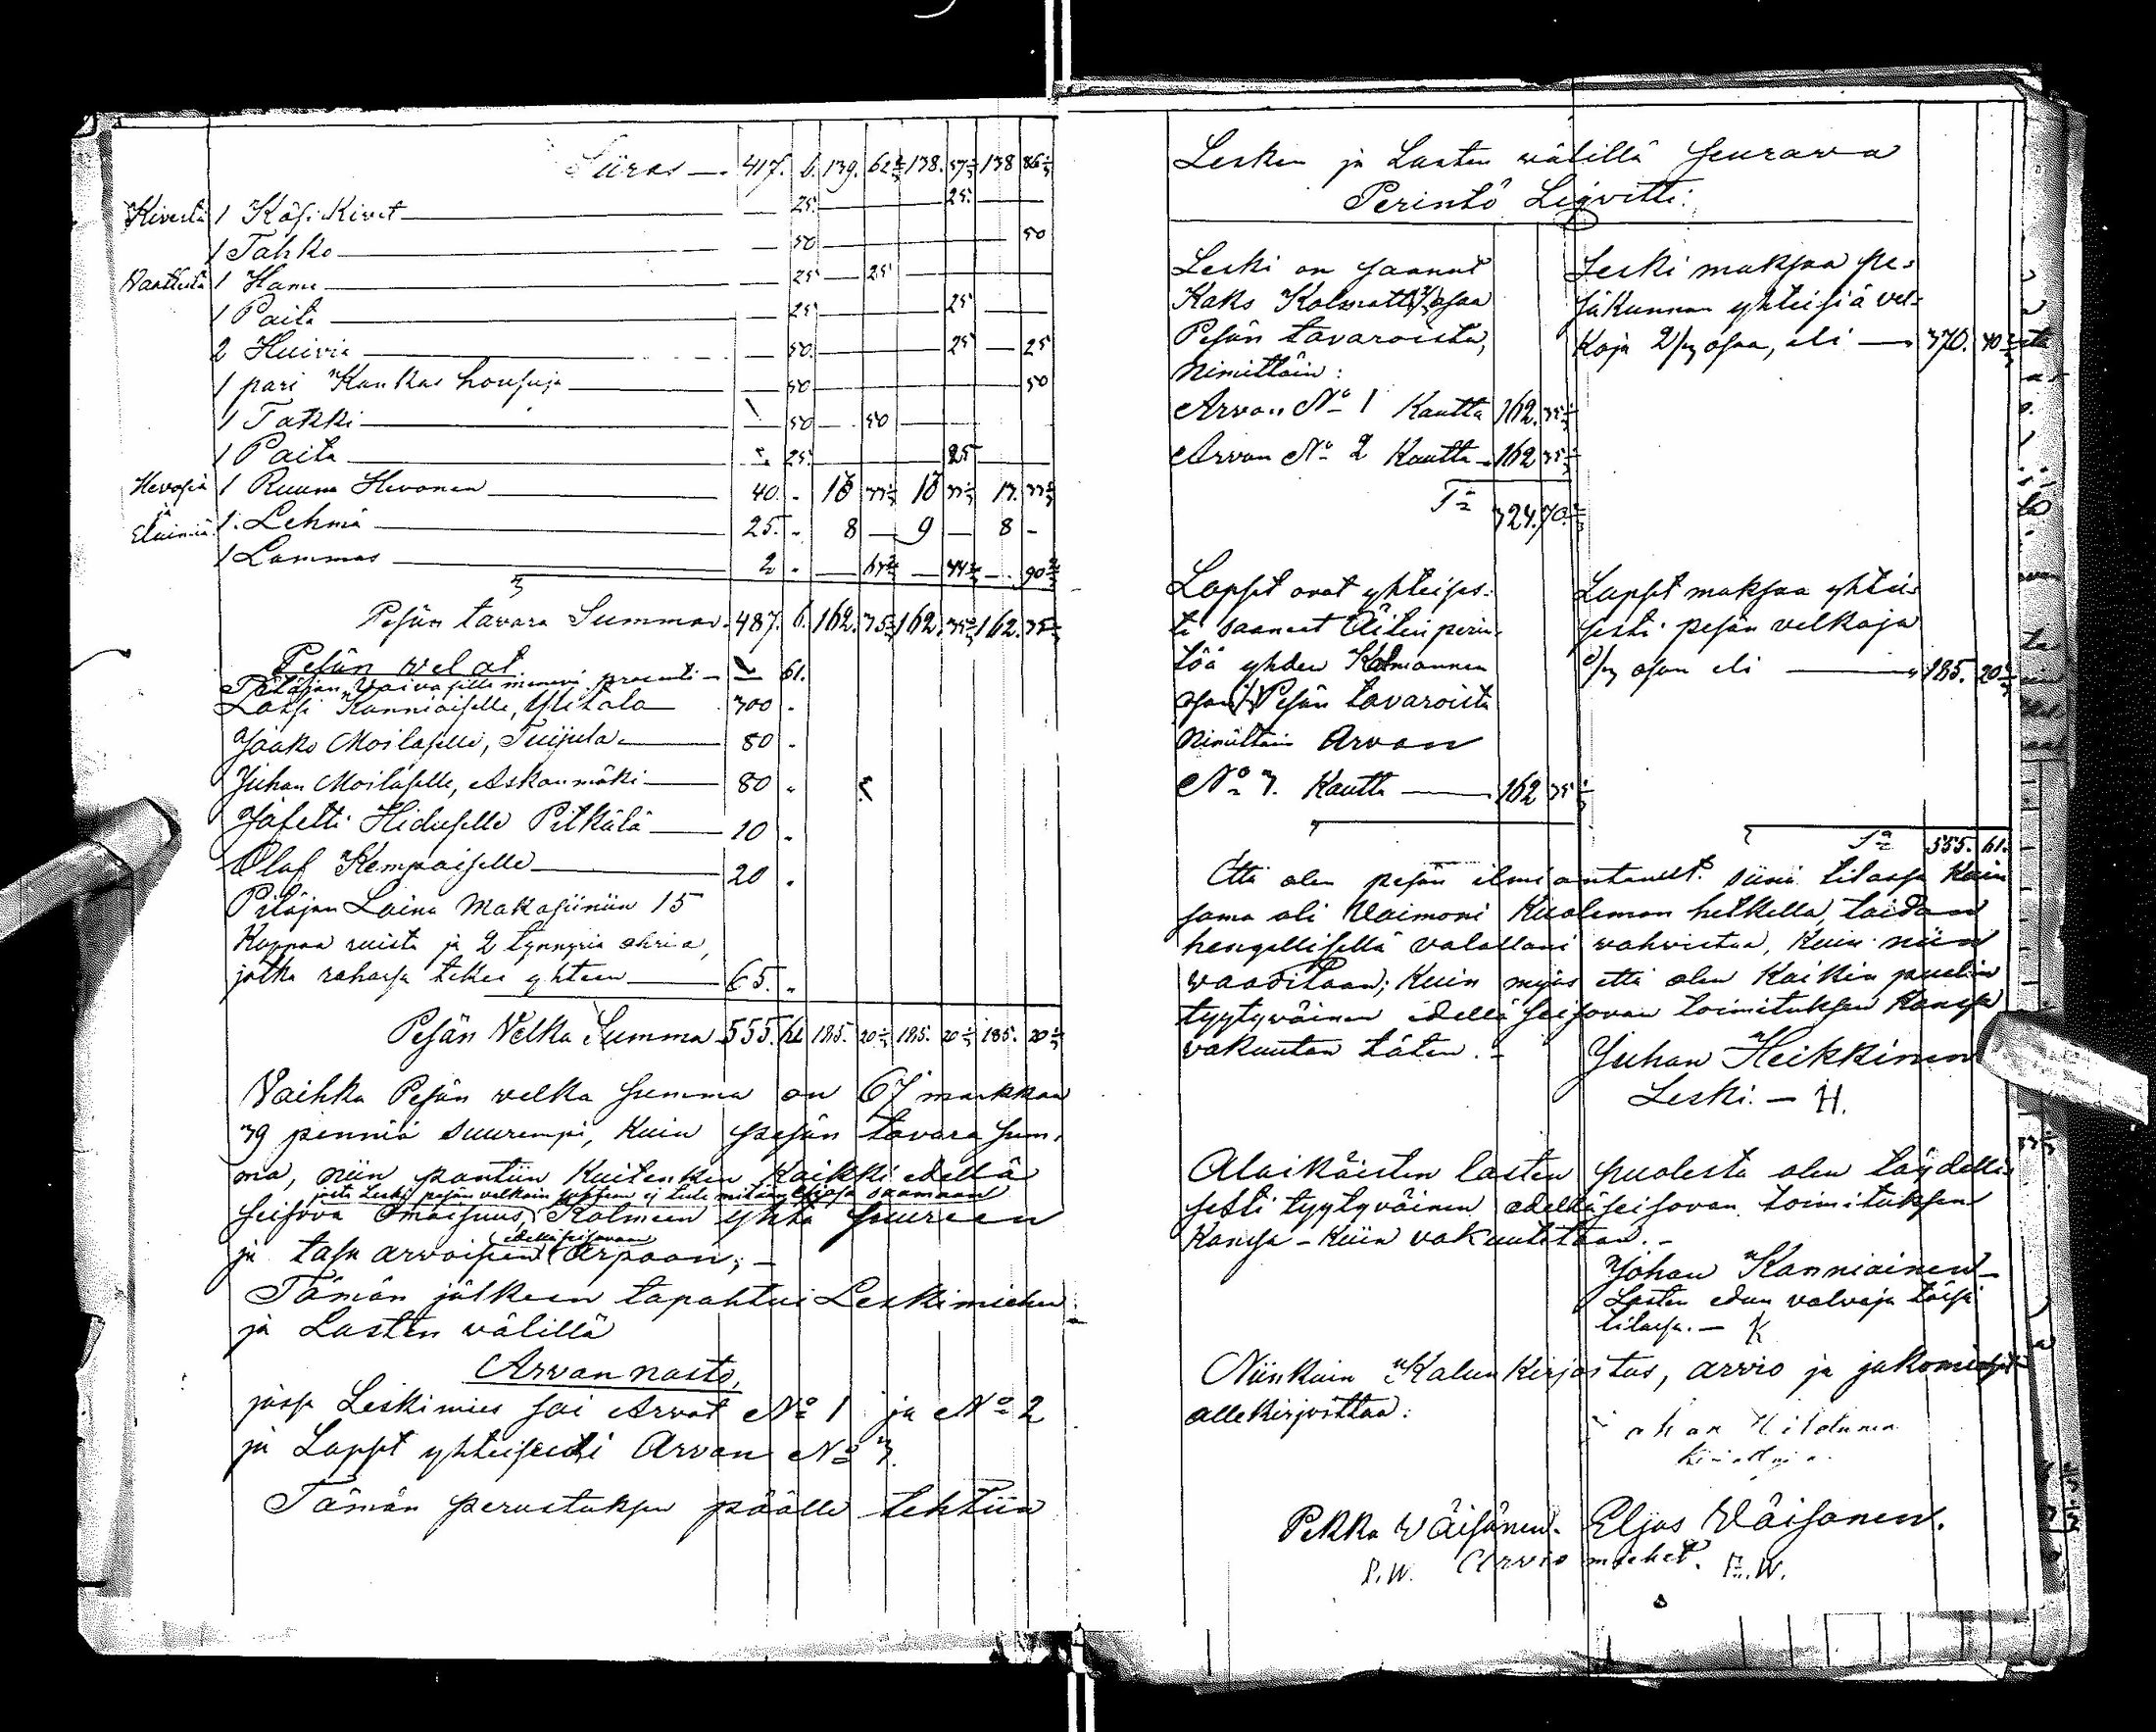 Siiros — 417. 6. 139. 62 2/3 138. 57 2/3 138 86 2/3
Kivestä 1 Käsi Kivet — 25. 25.
1 Tahko — 50 50
Vaatteita 1 Hame — 25 25
1 Paita — 25 25
2 Huivia — 50. 25 25
1 pari Kankas housuja — 50 50
1 Takki — 50 50
1 Paita — 25. 25
Hevosia 1 Ruuna Hevonen — 40. -
ja
Eläimiä 1. Lehmä — 25. - 8 — 9 — 8 -
1 Lammas — 2 -
Pesän tavara Summa. 487. 6. 162. 35 1/3 162. 35 1/3 162. 35 1/3
Pesän welat
Pitäjän Vaivasille menevi prosenti — 61.
Lassi Kanniaiselle, Ylitalo 300 -
Jaako Moilaselle, Tuijula — 80 -
Juhan Moilaselle, Askanmäki — 80 -
Jafetti Hiduselle Pitkälä — 10 -
Olaf Kempaiselle — 20 -
Pitäjän Laina Makasiiniin 15
Kappaa ruista ja 2 tynnyriä ohria,
jotka rahassa tekee yhteen — 65. -
Pesän Velka Summa 555. 61. 185. 20 1/3 185. 20 1/3 185. 20 1/3
Vaihka Pesän welka summa on 67 markkaa
39 penniä suurempi, kuin pesän tavara sum-
ma, niin pantiin kuitenkin kaikki edellä
josta Leski pesän velkain suhteen ej tule mitään etuosa saamaan
seisova Omaisuus, Kolmeen yhtä suureen
edelläseisovaan
ja tasa arvoiseen Arpaan; -
Tämän jälkeen tapahtui Leskimiehen
ja Lasten wälillä
Arvan nosto,
jossa Leskimies sai Arvat No 1 ja No 2
ja Lapset yhteisesti Arvan No 3.
Tämän perustuksen päälle tehtiin
Lesken ja Lasten wälillä seurava
Perintö Liqvitti:
Leski on saanut
Kaks Kolmatta 2/3 osaa
Pesän tavaroista,
Nimittäin:
Arvan No 1 Kautta 162. 35 1/3
Arvan No 2 Kautta - 162 35 1/3
Sa 324. 70 2/3
Leski maksaa pe-
säkunnan yhteisiä vel-
koja 2/3 osaa, eli — 370. 40 2/3
Lapset ovat yhteises-
ti saaneet Äitin perin-
töä yhden Kolmannen
osan 1/3 Pesän tavaroista
Nimittäin Arvan
No 3. Kautta — 162 35 1/3
Lapset maksaa yhtei-
sesti pesän velkoja
1/3 osan eli — 185. 20 1/3
Sa 555. 61.
Että olen pesän ilmiantanut siinä tilassa kuin
sama oli Vaimoni Kuoleman hetkellä, taidan
hengellisellä valallani wahvistaa, kuin niin
waaditaan; kuin myös että olen kaikin puolin
tyytyväinen edellä seisovan toimituksen kanssa
vakuutan täten. -
Juhan Heikkinen
Leski. - H.
Alaikäisten lasten puolesta olen täydelli-
sesti tyytyväinen edelläseisovan toimituksen
Kanssa - Kuin vakuutetaan. -
Johan Kanniainen -
Lasten edun valvoja täsä
tilassa. - K
Niinkuin Kalunkirjoitus, arvio ja jakomiehet
allekirjoittaa:
Pekka Wäisänen. Eljas Wäisänen.
P.W. Arvio miehet. E.W.